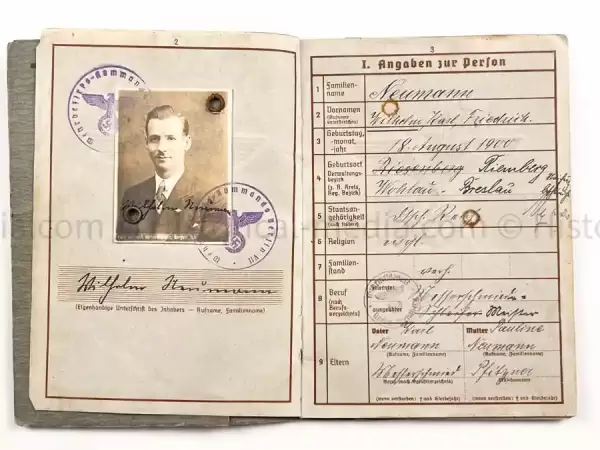 2
Wehrbezirks-Kommando
Wehrbezirks-Kommando Berlin VII
Wilhelm Neumann
Wilhelm Neumann
(Eigenhändige Unterschrift des Inhabers — Rufname, Familienname)
3
I. Angaben zur Person
1 Familien-
name
Neumann
2 Vornamen
(Rufname
unterstreichen)
Wilhelm, Karl, Friedrich
3 Geburtstag,
-monat,
-jahr
18. August 1900
4 Geburtsort
Verwaltungs-
bezirk
(z. B. Kreis,
Reg. Bezirk)
Riesenberg Riemberg
Wohlau - Breslau
5 Staatsan-
gehörigkeit
(auch frühere)
Dtsch. Reich
6 Religion
evgl.
7 Familien-
stand
verh.
8 Beruf
(nach
Berufs-
verzeichnis)
erlernter
Messerschmied
ausgeübter
Meister
9 Eltern
Vater Karl
Neumann
(Rufname, Familienname)
Messerschmied
Mutter Pauline
Neumann
(Rufname, Familienname)
Pfitzner
(wenn verstorben: † und Sterbejahr)
(wenn verstorben: † und Sterbejahr)